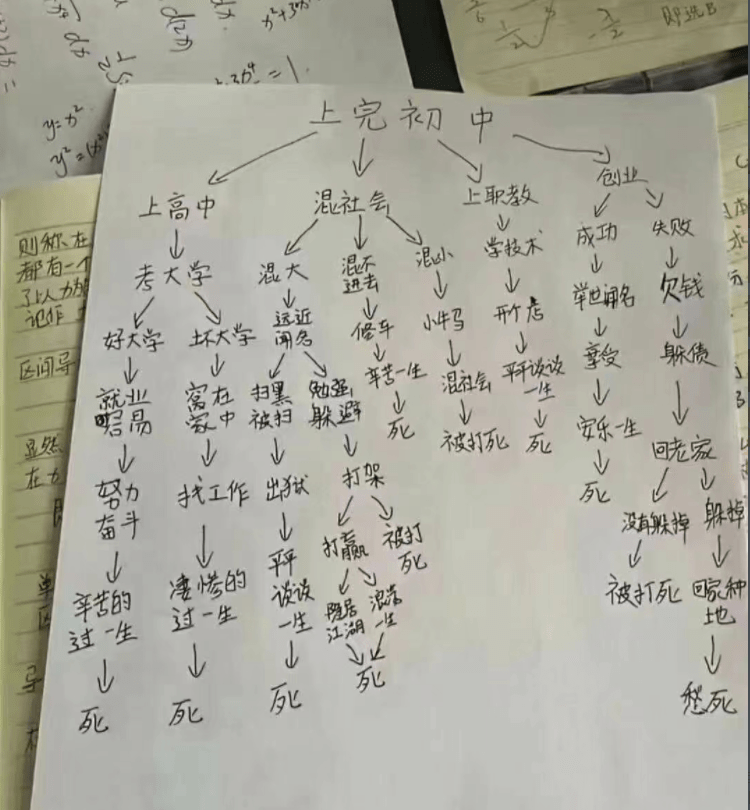 上完初中
上高中
考大学
好大学
就业
容易
努力
奋斗
辛苦的
过一生
死
坏大学
窝在
家中
找工作
凄惨的
过一生
死
混社会
混大
远近
闻名
扫黑
被扫
出狱
平平
谈谈
一生
死
勉强
躲避
打架
打赢
隐居
江湖
浪荡
一生
死
被打
死
混不
进去
修车
辛苦一生
死
混小
小牛马
混社会
被打死
上职教
学技术
开个店
平平谈谈
一生
死
创业
成功
举世闻名
享受
安乐一生
死
失败
欠钱
躲债
回老家
没有躲掉
被打死
躲掉
回家种
地
愁死
y=x²
即选B
则称在
都有一个
记作
区间导
显然